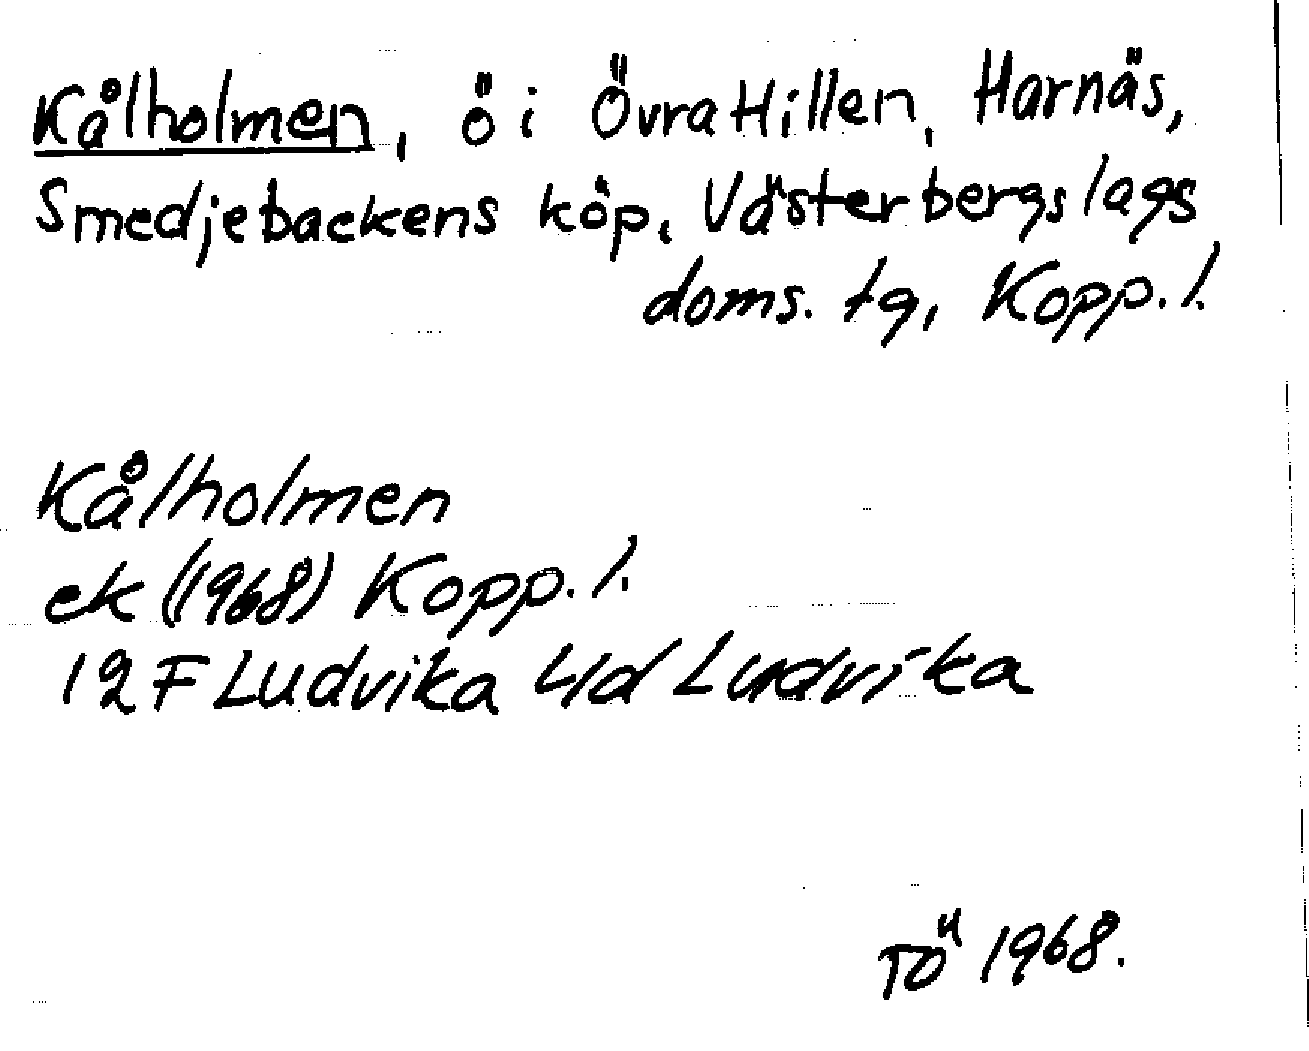 Kålholmen, ö i Övra Hillen, Harnäs,
Smedjebackens köp, Västerbergslags
doms. tg, Kopp. l.
Kålholmen
ek (1968) Kopp. l.
12 F Ludvika 4d Ludvika
TÖ 1968.